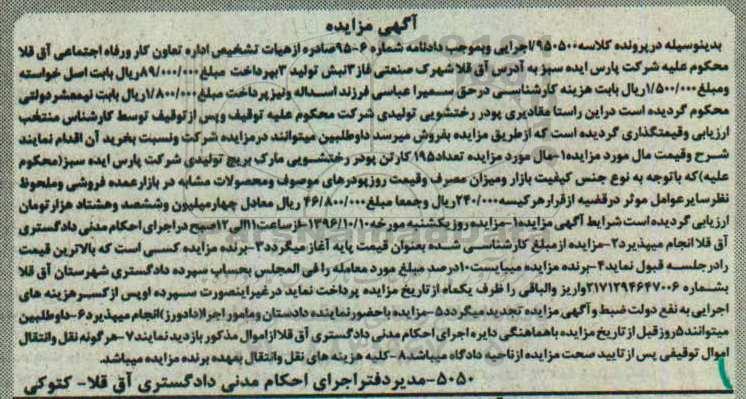 آگهی مزایده
بدینوسیله در پرونده کلاسه ۹۵۰۵۰۰/اجرایی و بموجب دادنامه شماره ۶-۹۵ صادره از هیات تشخیص اداره تعاون کار ورفاه اجتماعی آق قلا
محکوم علیه شرکت پارس ایده سبز به آدرس آق قلا شهرک صنعتی فاز ۳ نبش تولید ۳ بپرداخت مبلغ ۸۹/۰۰۰/۰۰۰ ریال بابت اصل خواسته
ومبلغ ۱/۵۰۰/۰۰۰ ریال بابت هزینه کارشناسی در حق سمیرا عباسی فرزند اسداله ونیز پرداخت مبلغ ۱/۸۰۰/۰۰۰ ریال بابت نیمعشر دولتی
محکوم گردیده است در این راستا مقادیری پودر رختشویی تولیدی شرکت محکوم علیه توقیف وپس از توقیف توسط کارشناس منتخب
ارزیابی وقیمتگذاری گردیده است که از طریق مزایده بفروش میرسد داوطلبین میتوانند در مزایده شرکت ونسبت بخرید آن اقدام نمایند
شرح وقیمت مال مورد مزایده ۱-مال مورد مزایده تعداد ۱۹۵ کارتن پودر رختشویی مارک بریج تولیدی شرکت پارس ایده سبز (محکوم
علیه) که باتوجه به نوع جنس کیفیت بازار ومیزان مصرف وقیمت روز پودرهای موصوف ومحصولات مشابه در بازار عمده فروشی وملحوظ
نظر سایر عوامل موثر در قضیه از قرار هر کیسه ۲۴۰/۰۰۰ ریال وجمعا مبلغ ۴۶/۸۰۰/۰۰۰ ریال معادل چهار میلیون وششصد وهشتاد هزار تومان
ارزیابی گردیده است شرایط آگهی مزایده ۱-مزایده روز یکشنبه مورخه ۱۳۹۶/۱۰/۱۰ -از ساعت ۱۱ الی ۱۲ صبح در اجرای احکام مدنی دادگستری
آق قلا انجام میپذیرد ۲-مزایده از مبلغ کارشناسی شده بعنوان قیمت پایه آغاز میگردد ۳-برنده مزایده کسی است که بالاترین قیمت
را در جلسه قبول نماید ۴-برنده مزایده میبایست ۱۰ درصد مبلغ مورد معامله را فی المجلس بحساب سپرده دادگستری شهرستان آق قلا
بشماره ۲۱۷۱۲۹۴۶۴۷۰۰۶ واریز والباقی را ظرف یکماه از تاریخ مزایده پرداخت نماید در غیر اینصورت سپرده او پس از کسر هزینه های
اجرایی به نفع دولت ضبط و آگهی مزایده تجدید میگردد ۵-مزایده با حضور نماینده دادستان ومامور اجرا (دادورز) انجام میپذیرد ۶-داوطلبین
میتوانند ۵ روز قبل از تاریخ مزایده با هماهنگی دایره اجرای احکام مدنی دادگستری آق قلا از اموال مذکور بازدید نمایند ۷-هر گونه نقل وانتقال
اموال توقیفی پس از تایید صحت مزایده از ناحیه دادگاه میباشد ۸-کلیه هزینه های نقل وانتقال بعهده برنده مزایده میباشد.
۵۰۵۰-مدیر دفتر اجرای احکام مدنی دادگستری آق قلا- کتوکی